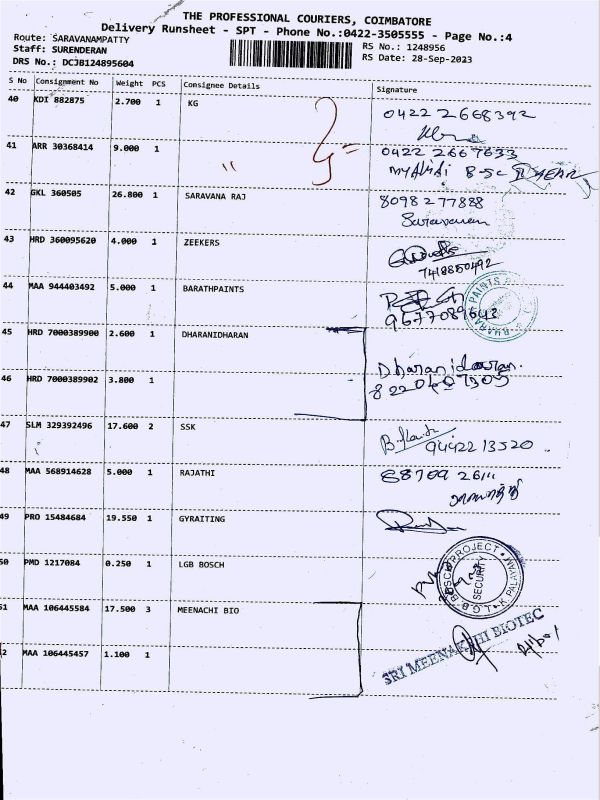 THE PROFESSIONAL COURIERS, COIMBATORE
Delivery Runsheet - SPT - Phone No.:0422-3505555 - Page No.:4
Route: SARAVANAMPATTY
Staff: SURENDERAN
RS No.: 1248956
DRS No.: DCJB124895604
RS Date: 28-Sep-2023
S No Consignment No Weight PCS Consignee Details Signature
40 KDI 882875 2.700 1 KG 0422 2668392
41 ARR 30368414 9.000 1 " 0422 2667633
B-SC II YEAR
42 GKL 360505 26.800 1 SARAVANA RAJ 8098277888
Saravanan
43 HRD 360095620 4.000 1 ZEEKERS
7418850492
44 MAA 944403492 5.000 1 BARATHPAINTS
9677089643
45 HRD 7000389900 2.600 1 DHARANIDHARAN Dharanidharan.
46 HRD 7000389902 3.800 1
47 SLM 329392496 17.600 2 SSK 9442213520
48 MAA 568914628 5.000 1 RAJATHI
49 PRO 15484684 19.550 1 GYRAITING
50 PMD 1217084 0.250 1 LGB BOSCH
L.G.B. BOSCH PROJECT K. PALAYAM
SECURITY
51 MAA 106445584 17.500 3 MEENACHI BIO
SRI MEENAKSHI BIOTEC
2 MAA 106445457 1.100 1